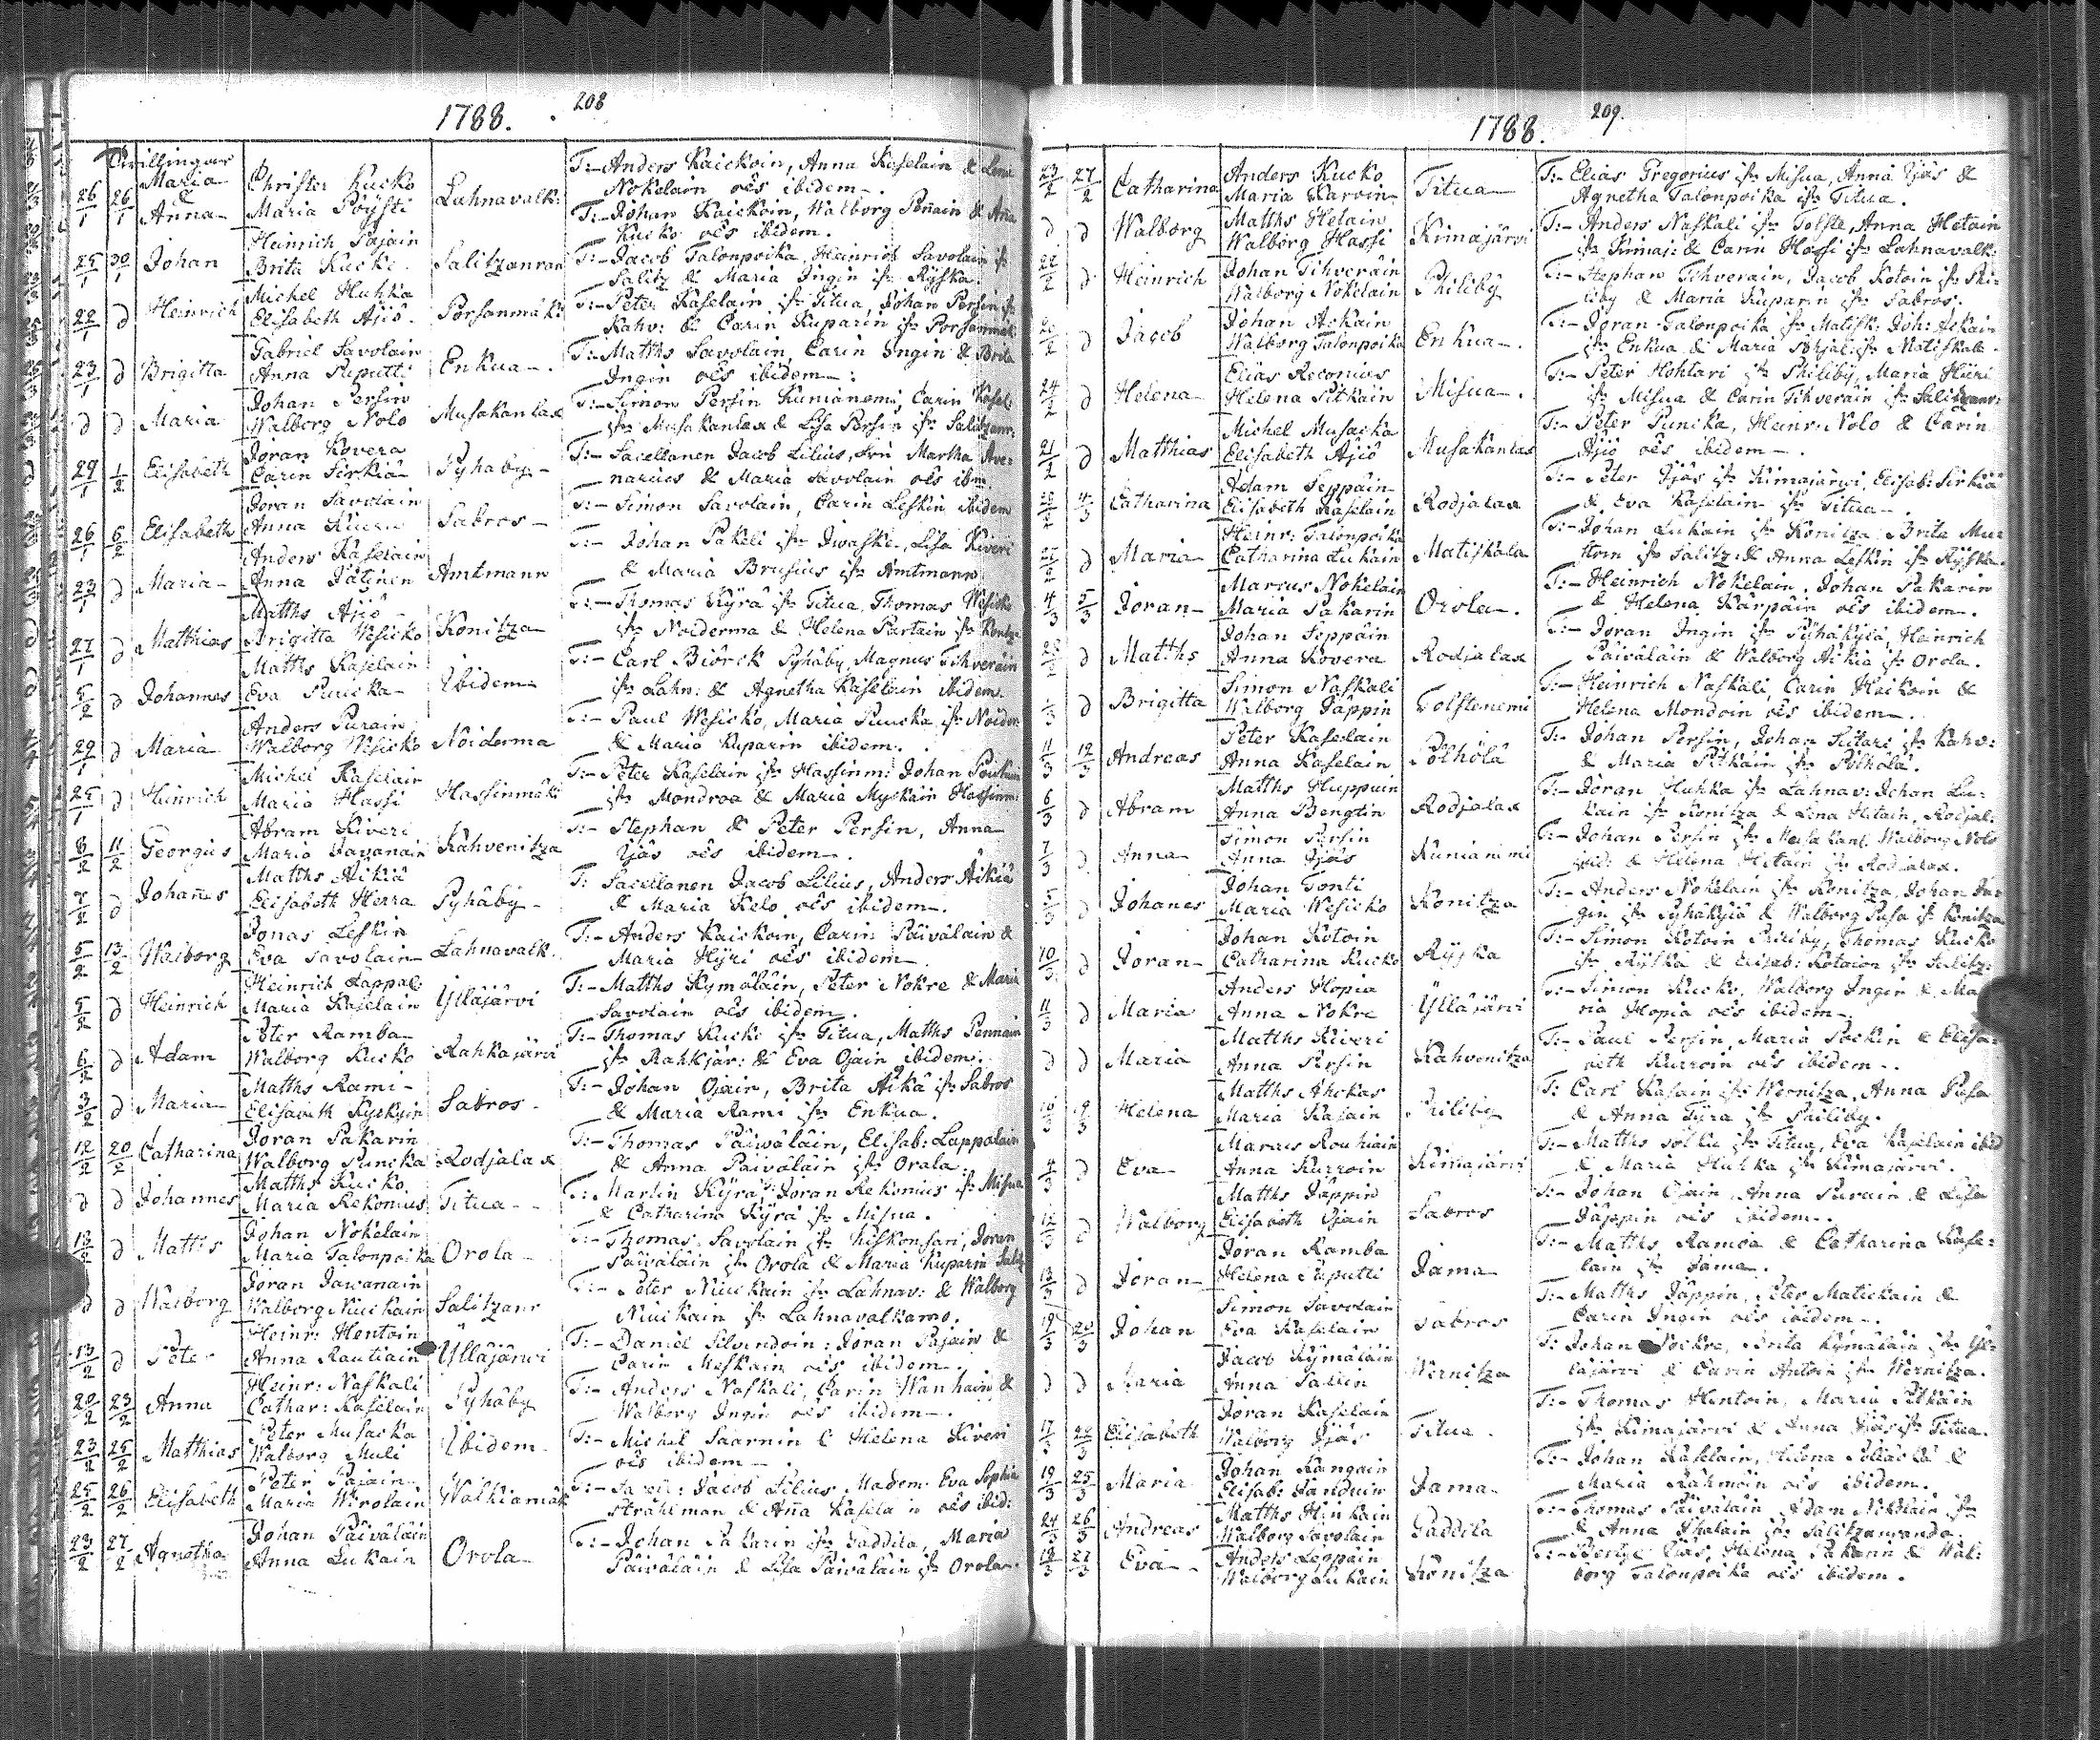 1788. 208
Tvillingar
Maria
&
26/1 26/1 Anna
Christer Kucko
Maria Pöysti
Lahnavalk:
T:- Anders Kaickoin, Anna Kaselain & Lena
Nokelain oës ibidem-.
T:- Johan Kaickoin, Walborg Peñain & Aña
Kucko oës ibidem.
25/1 30/1 Johan
Heinrich Pajain
Brita Kucko
Salitzanran
T:- Jacob Talonpoika, Heinrich Savolain ifr
Salitz & Maria Ingin ifr Ryska.
22/1 d Heinrich
Michel Hukka
Elisabeth Ajiö.
Porsanmäki
T:- Peter Kaselain ifr Titua, Johan Persin ifr
Kahv: & Carin Kuparin ifr Porsanmäk
23/1 d Brigitta
Gabriel Savolain
Anna Puputti
Enkua-.
T:- Matths Savolain, Carin Ingin & Brita
Ingin oës ibidem-:
d d Maria
Johan Persin
Walborg Nolo
Musakanlax
T:- Simon Persin Kunianemi, Carin Kasel:
ifr Musakanlax & Lisa Persin ifr Salitzanr:
29/1 1/2 Elisabeth
Joran Kovera
Carin Sirkiä
Pyhäby-
T:- Sacellanen Jacob Lilius, Martha
narius & Maria Savolain oës ibm.
26/1 6/2 Elisabeth
Joran Savolain
Anna
Sabros-
T:- Simon Savolain, Carin Leskin ibidem
23/1 d Maria-
Anders Kaselain
Anna Jätinen
Amtmann
T:- Johan Pakeli ifr Iwaske, Lisa Kiveri
& Maria Brusius ifr Amtmann
27/1 d Matthias
Matths Ajiö
Brigitta Wesicko
Konitza
T:- Thomas Kyrä ifr Titua, Thomas Wesicko
ifr Noiderma & Helena Partain ifr Konitz
5/2 d Johannes
Matths Kaselain
Eva Punicka-
Ibidem-
T:- Carl Biörck Pyhäby, Magnus Tihverain
ifr Lahn: & Agnetha Kaselain ibidem.
29/1 d Maria
Anders Purain
Walborg Wesicko
Noiderma
T:- Paul Wesicko, Maria Puncka ifr Noider
& Maria Kuparin ibidem.
25/1 d Heinrich
Michel Kaselain
Maria Hassi
Hassinmäki
T:- Peter Kaselain ifr Hassinm: Johan
ifr Mondroa & Maria Myckäin Hassinm:
8/2 11/2 Georgius
Abram Kiveri
Maria Javanain
Kahvenitza
T:- Stephan & Peter Persin, Anna
Ijäs oës ibidem-.
7/2 d Johañes
Matths Äikiä
Elisabeth Herra
Pyhäby-
T: Sacellanen Jacob Lilius, Anders Äikiä
& Maria Kelo oës ibidem-.
5/2 13/2 Walborg
Jonas Leskin
Eva Savolain
Lahnavalk.
T:- Anders Kaickoin, Carin Päivälain &
Maria Hyri oës ibidem-.
5/2 d Heinrich
Heinrich Lappal:
Maria Kaselain
Ylläjärvi
T:- Matths Kymäläin, Peter Nokre & Maria
Savolain oës ibidem.
6/2 d Adam
Peter Ramba
Walborg Kucko
Rahkajärvi
T:- Thomas Kucko ifr Titua, Matths Pennäin
ifr Rahkjär: & Eva Ojain ibidem.
3/2 d Maria
Matths Rami-
Elisabeth
Sabros.
T:- Johan Ojain, Brita Äikä ifr Sabros
& Maria Rami ifr Enkua.
12/2 20/2 Catharina
Joran Pakarin
Walborg Puncka
Rodjalax
T:- Thomas Päiwäläin, Elisab: Lappalain
& Anna Paivälain ifr Orola.
d d Johannes
Matths Kucko
Maria Rekonius
Titua-
T:- Martin Kyrä, Joran Rekonius ifr Misua
& Catharina Kyrä ifr Misua.
13/2 d Matts
Johan Nokelain
Maria Talonpoika
Orola-
T:- Thomas Savolain ifr Kiskonsari, Joran
Päiväläin ifr Orola & Maria Kuparin Salitz
d d Walborg
Joran Jawanain
Walborg Nuickain
Salitzanr
T:- Peter Niuckain ifr Lahnav: & Walborg
Niuckain ifr Lahnavalkamo.
13/2 d Peter
Heinr: Hentoin
Anna Rautiain
Ylläjärvi
T:- Daniel Silvendoin: Joran Pajain &
Carin Meskain oës ibidem-.
20/2 23/2 Anna
Heinr: Naskali
Cathar: Kaselain
Pyhäby
T:- Anders Naskali, Carin Wanhain &
Walborg Ingin oës ibidem-.
23/2 25/2 Matthias
Peter Musacka
Walborg Muli
Ibidem.
T:- Michel Saarnin & Helena Kiveri
oës ibidem-.
25/2 26/2 Elisabeth
Peter Pajain
Maria Wirolain
Walkiamäk
T:- Jacob Lilius, Madem: Eva Sophia
Strählman & Aña Kaselain oës ibid:
23/2 27/2 Agnetha
Johan Päiväläin
Anna Lukain
Orola-
T:- Johan Pakarin ifr Gaddila, Maria
Päiväläin & Lisa Päiväläin ifr Orola-.
1788. 209.
23/2 27/2 Catharina
Anders Kucko
Maria Karvin
Titua-
T:- Elias Gregorius ifr Misua, Anna Ijäs &
Agnetha Talonpoika ifr Titua.
d d Walborg
Matths Hetain
Walborg Hassi
Kimajärvi
T:- Anders Naskali ifr Tolste, Anna Hetain
ifr Kimaj: & Carin Hassi ifr Lahnavalk:
22/2 d Heinrich
Johan Tihveräin
Walborg Nokelain
Philiby
T:- Stephan Tihverain, Jacob Kotoin ifr Phi-
liby & Maria Kuparin ifr Sabros.
20/2 d Jacob
Johan Ackain
Walborg Talonpoika
Enkua-.
T:- Joran Talonpoika ifr Matisk: Joh: Ackain
ifr Enkua & Maria Pohjal: ifr Matiskala.
24/2 d Helena
Elias Reconius
Helena Pitkäin
Misua-.
T:- Peter Hohtari ifr Philiby, Maria Hiiri
ifr Misua & Carin Tihverain ifr Salitzanr:
21/2 d Matthias
Michel Musacka
Elisabeth Ajiö
Musakanlax
T:- Peter Puncka, Heinr: Nolo & Carin
Ajiö oës ibidem-.
4/3 Catharina
Adam Seppäin
Elisabeth Kaselain
Rodjalax
T:- Peter Ijäs ifr Kimajärvi, Elisab: Sirkiä
& Eva Kaselain ifr Titua-.
d Maria
Heinr: Talonpoika
Catharina Lukain
Matiskala
T:- Johan Lukain ifr Konitza Brita
ifr Salitz: & Anna Leskin ifr Ryska.
4/3 5/3 Joran-
Marcus Nokelain
Maria Pakarin
Orola-.
T:- Heinrich Nokelain, Johan Pakarin
& Helena Karpäin oës ibidem-.
d Matths
Johan Seppäin
Anna Kovera
Rodjalax
T:- Joran Ingin ifr Pyhäkylä, Heinrich
Päiväläin & Walborg Äikiä ifr Orola.
1/3 d Brigitta
Simon Naskali
Walborg Jäppin
Tolstenemi
T:- Heinrich Naskali, Carin &
Helena Mondoin oës ibidem-.
11/3 12/3 Andreas
Peter Kaselain
Anna Kaselain
Pölhölä
T:- Johan Persin, Johan Sutari ifr Kahv:
& Maria Pitkäin ifr Pölhölä.
6/3 d Abram
Matths Huppuin
Anna Bengtin
Rodjalax
T:- Joran Hukka ifr Lahnav: Johan Lu-
kain ifr Konitza & Lena Hetain, Rodjal:
7/3 d Anna
Simon Persin
Anna Ijäs
Kunianimi
T:- Johan Persin ifr Musakanl. Walborg Nolo
ibid: & Helena Hetain ifr Rodjalax.
5/3 d Johanes
Johan Tonti
Maria Wesicko
Konitza
T:- Anders Nokelain ifr Konitza, Johan In-
gin ifr Pyhäkylä & Walborg Pusa ifr Konitza
10/3 d Joran-
Johan Kotoin
Catharina Kucko
Ryska
T:- Simon Kotoin Philiby, Thomas Kucko
ifr Ryska & Elisab: Kotoin ifr Salitz:
11/3 d Maria
Anders Hopia
Anna Nokre
Ylläjärvi
T:- Simon Kucko, Walborg Ingin & Ma-
ria Hopia oës ibidem-.
d d Maria
Matths Kiveri
Anna Persin
Kahvenitza
T:- Paul Persin, Maria & Elisa-
beth Kurroin oës ibidem-.
Helena
Matths Ahokas
Maria Kasain
Philiby
T: Carl Kasain ifr Wernitza, Anna Pusa
& Anna Tyra ifr Philiby.
4/3 d Eva-
Marcus Rouhiain
Anna Kurroin
Kimajärvi
T:- Matths ifr Titua, Eva Kaselain ibid
& Maria Hukka ifr Kimajärvi.
d Walborg
Matths Jäppin
Elisabeth Ojain
Sabros
T:- Johan Ojain, Anna Purain & Lisa
Jäppin oës ibidem-.
13/3 d Joran-
Joran Ramba
Helena Puputti
Jama-
T:- Matths Ramba & Catharina Kase-
lain ifr Jama.
19/3 20/3 Johan
Simon Savolain
Eva Kaselain
Sabros
T:- Matths Jäppin, Peter Matickain &
Carin Ingin oës ibidem-.
d d Maria
Jacob Kymäläin
Anna Pallin
Wernitza
T: Johan Nockre, Brita Kymäläin ifr Yl-
läjärvi & Carin Antoin ifr Wernitza.
17/3 Elisabeth
Joran Kaselain
Walborg Ijäs
Titua.
T:- Thomas Hentoin, Maria Pitkäin
ifr Kimajärvi & Anna Ijäs ifr Titua.
19/3 25/3 Maria
Johan Kangain
Elisab: Randuin
Jama
T:- Johan Kaselain, Helena &
Maria oës ibidem.
24/3 26/3 Andreas
Matths Hinkain
Walborg Savolain
Gaddila
T:- Thomas Päiväläin, Adam Nokelain ifr
& Anna ifr Salitzanranda.
18/3 27/3 Eva-
Anders Leppäin
Walborg Lukain
Konitza
T:- Ijäs, Helena Pakarin & Wal-
borg Talonpoika oës ibidem.